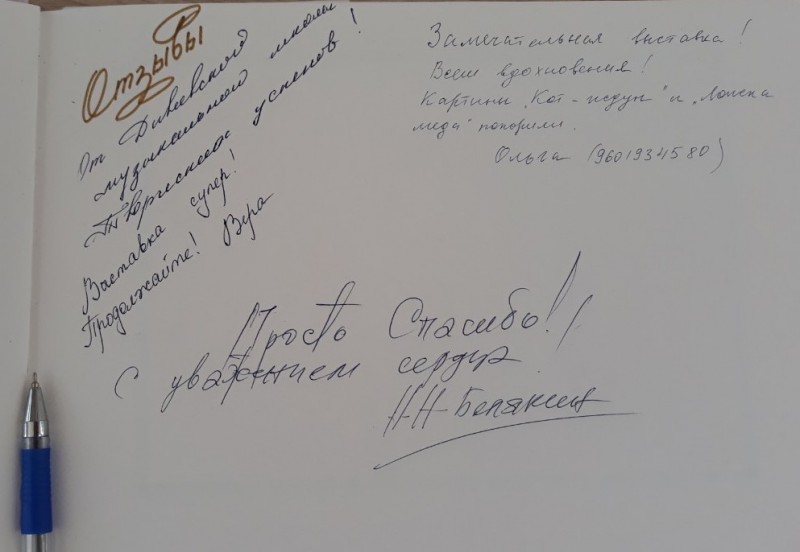 Отзывы
От Дивеевской
музыкальной школы
Творческих успехов!
Выставка супер!
Продолжайте! Вера
Замечательная выставка!
Всем вдохновения!
Картины „Кот-ждун" и „Поиски
меда" покорили.
Ольга (9601934580)
Просто Спасибо!
С уважением сердца
Н-Н-Белякина